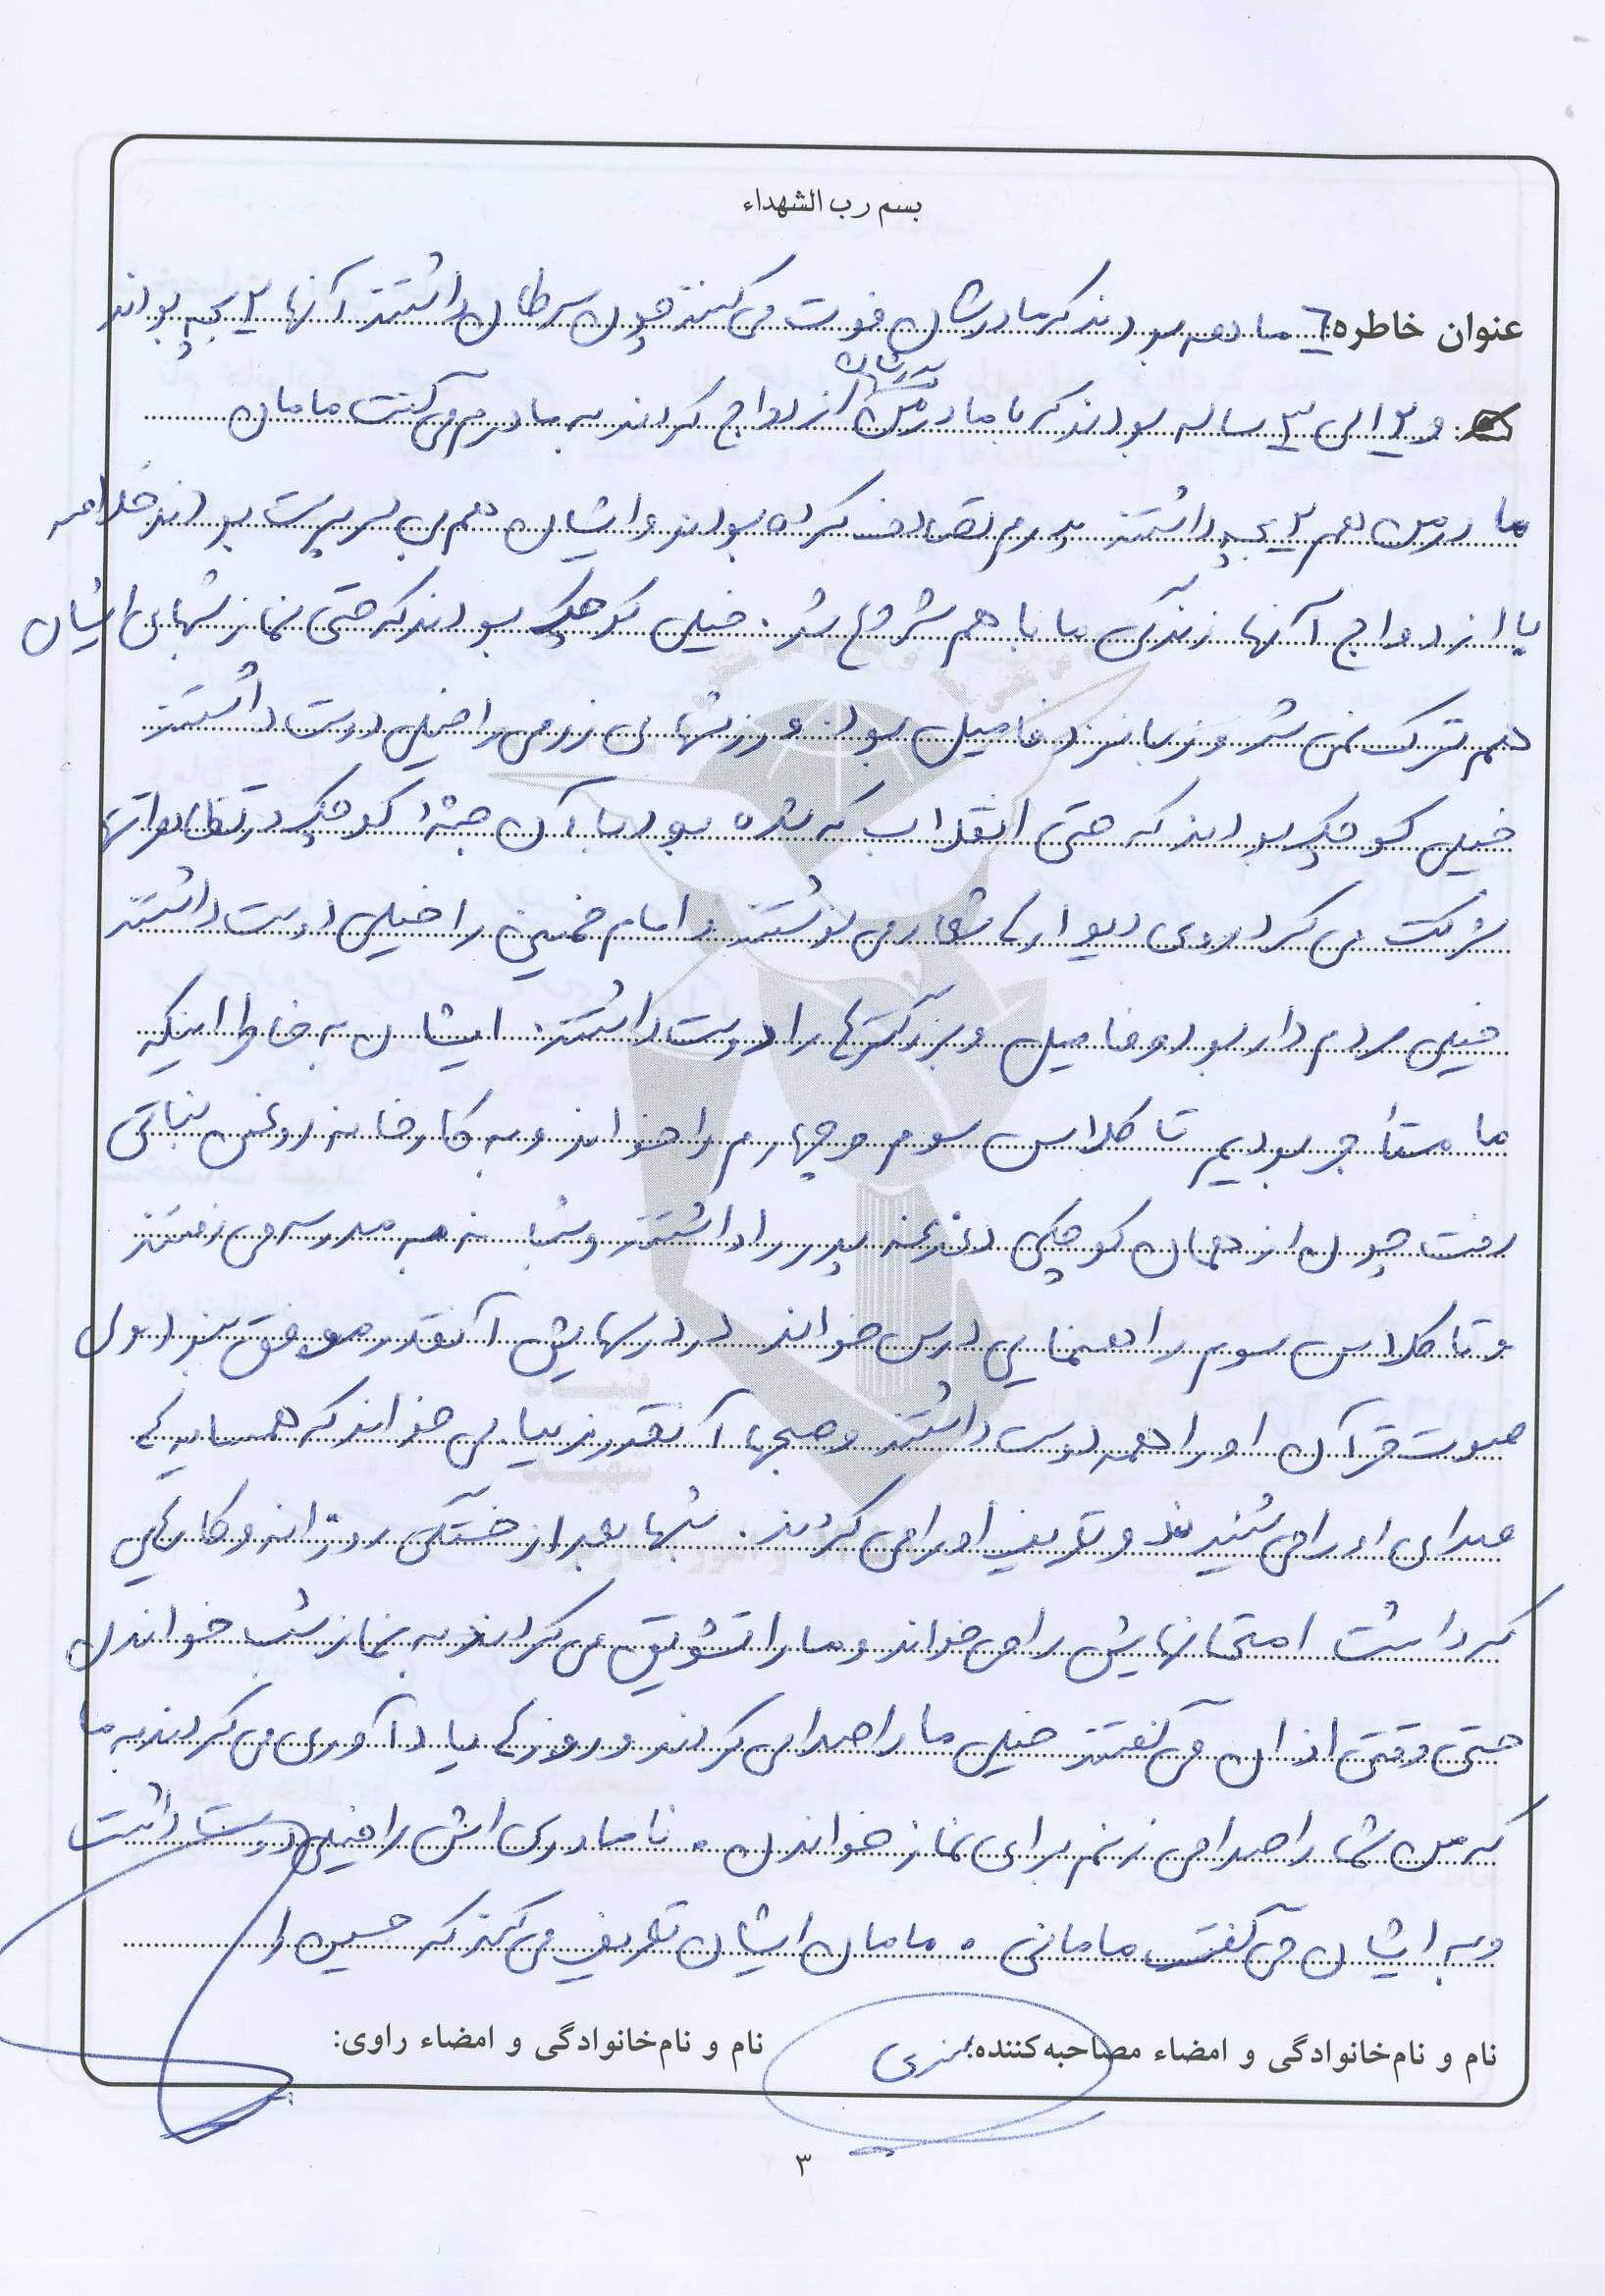 بسم رب الشهداء
عنوان خاطره: ٦ ماهه بودند که مادرشان فوت می کنند چون سرطان داشتند آنها ٢ بچه بودند
و ٢ الی ٣ ساله بودند که با مادر من پدرشان ازدواج کردند به مادرم می گفت مامان
مادر من هم ٢ بچه داشتند پدرم تصادف کرده بودند و ایشان هم بی سرپرست بودند خلاصه
با ازدواج آنها زندگی ما با هم شروع شد. خیلی کوچک بودند که حتی نماز شبهای ایشان
هم ترک نمی شد و زبانزد فامیل بود. ورزشهای رزمی را خیلی دوست داشتند
خیلی کوچک بودند که حتی انقلاب که شده بود با آن جثه کوچک در تظاهراتها
شرکت می کرد روی دیوارها شعار می نوشتند و امام خمینی را خیلی دوست داشتند
خیلی مردم دار بود و فامیل و بزرگترها را دوست داشتند. ایشان به خاطر اینکه
ما مستأجر بودیم تا کلاس سوم و چهارم را خواند و به کارخانه روغن نباتی
رفت چون از همان کوچکی دغدغه پدر را داشتند و شبانه به مدرسه می رفتند
و تا کلاس سوم راهنمایی درس خواند در درسهایش آنقدر موفق نبود ولی
صوت قرآن او را همه دوست داشتند و صبحها آنقدر زیبا می خواند که همسایه ها
صدای او را می شنیدند و تعریف او را می کردند. شبها بعد از خستگی روزانه و کارهایی
که داشت امتحانهایش را می خواند و ما را تشویق می کردند به نماز شب خواندن
حتی وقتی اذان می گفتند خیلی ما را صدا می کردند و روزها یادآوری می کردند به ما
که من شما را صدا می زنم برای نماز خواندن. نامادری اش را خیلی دوست داشت
و به ایشان می گفت مامانی. مامان ایشان تعریف می کند که حسین را
نام و نام‌خانوادگی و امضاء مصاحبه‌کننده:
نام و نام‌خانوادگی و امضاء راوی:
٣